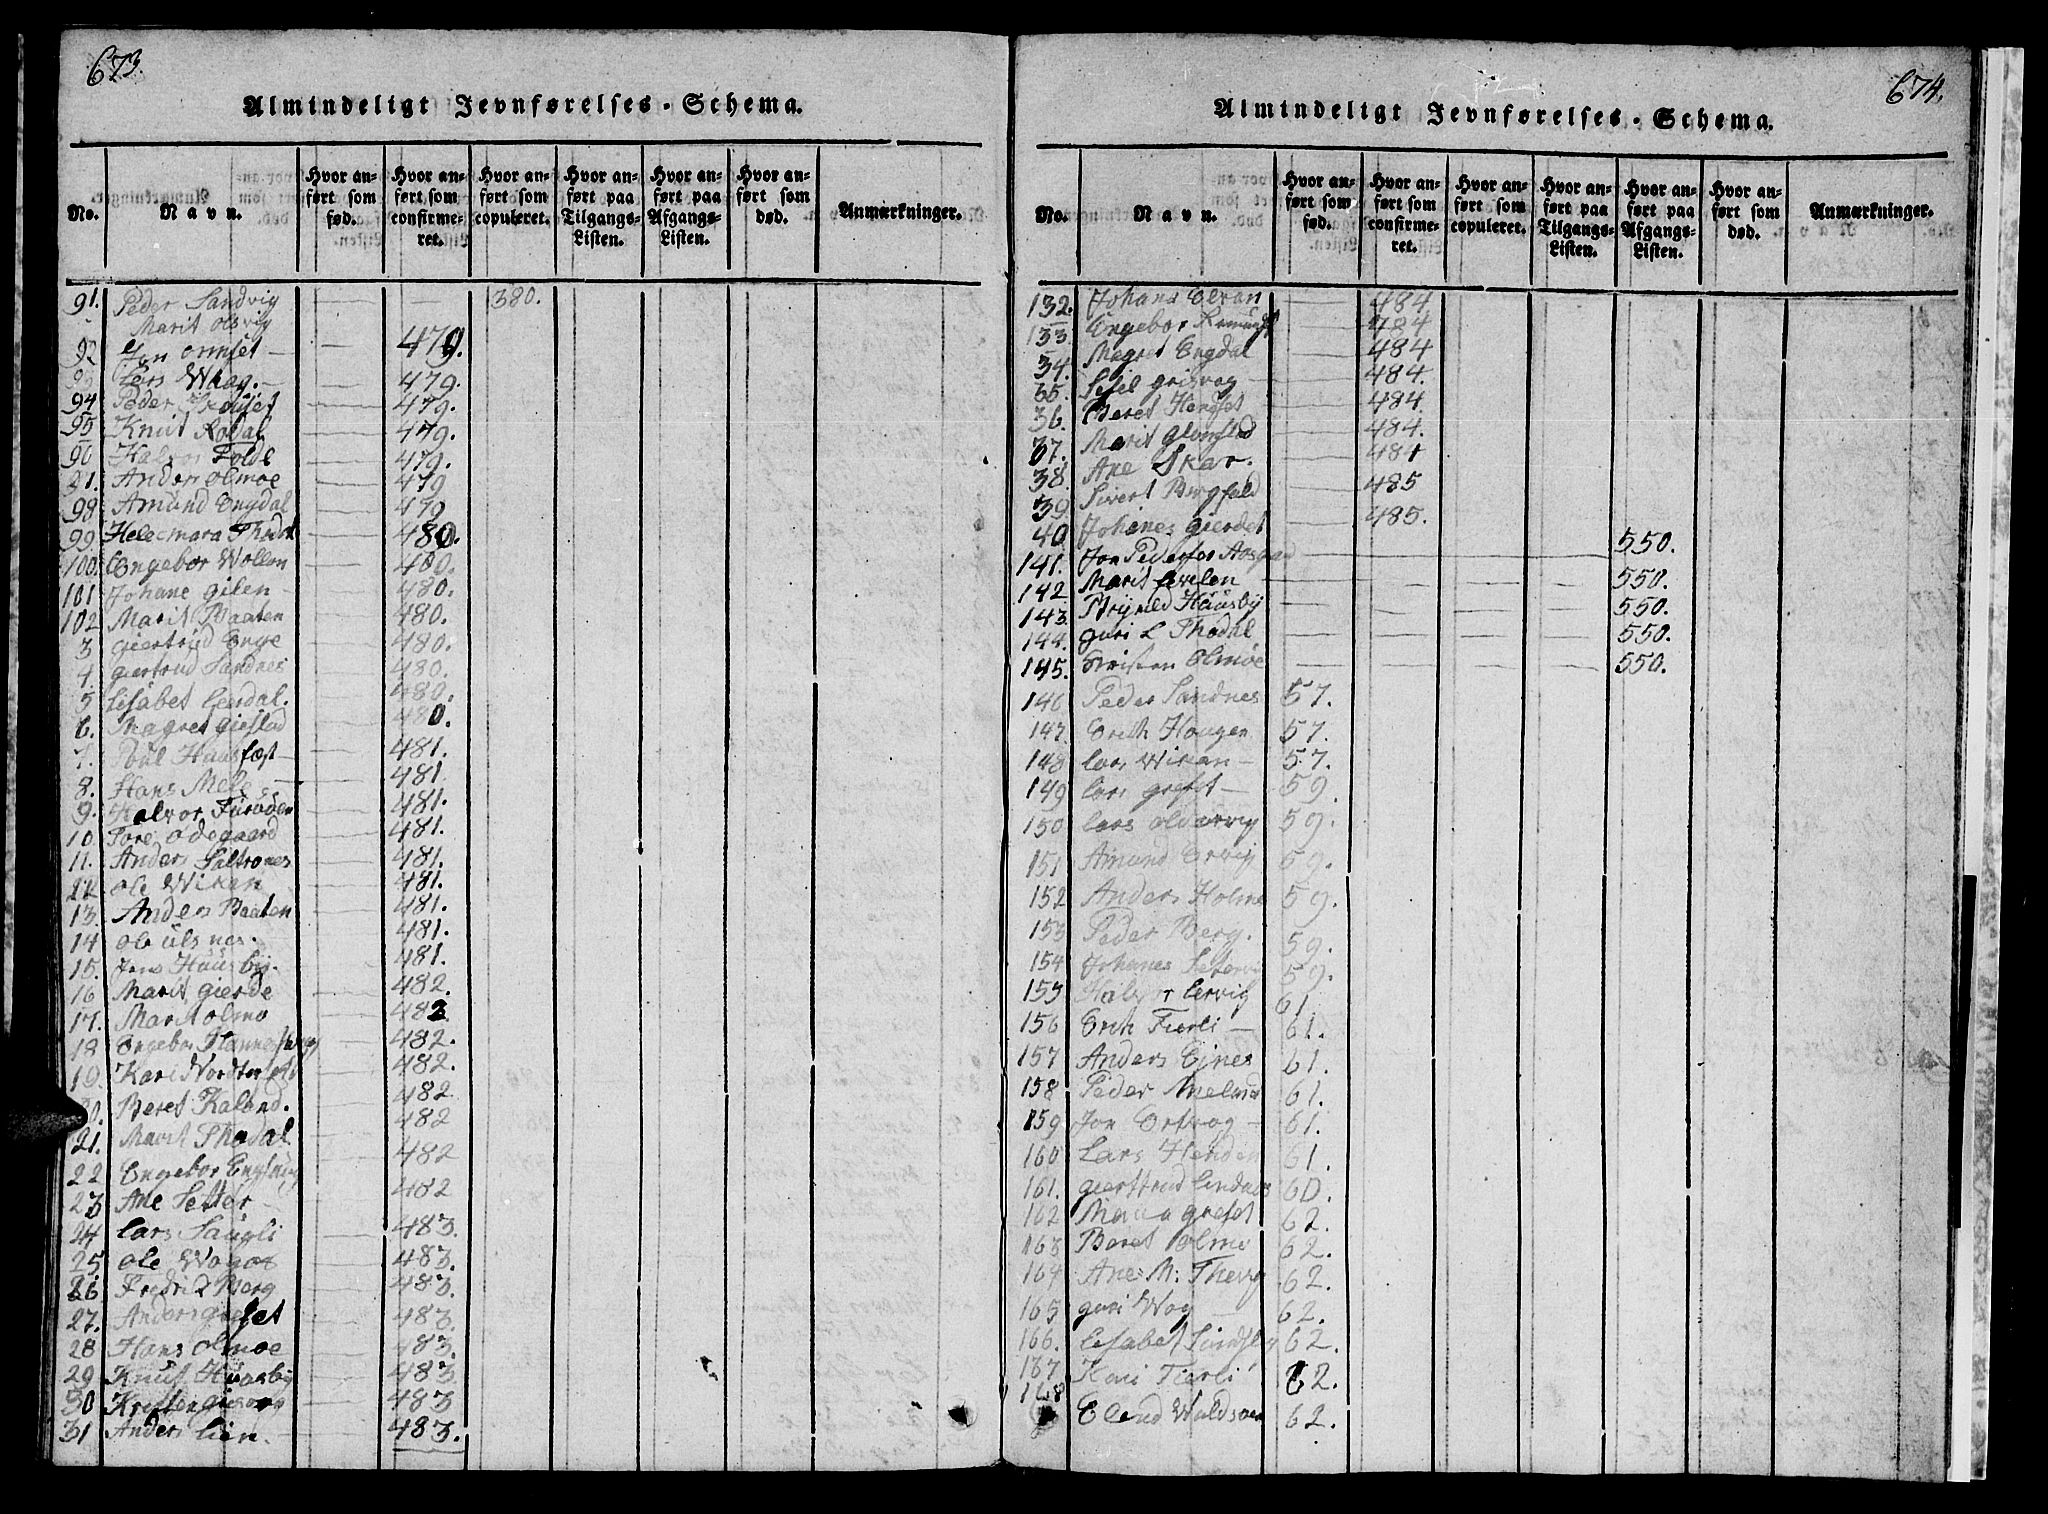 673.
Almindeligt Jevnførelses-Schema.
No. Navn. Hvor anført som fød. Hvor anført som confirmeret. Hvor anført som copuleret. Hvor anført paa Tilgangs-Listen. Hvor anført paa Afgangs-Listen. Hvor anført som død. Anmærkninger.
91. Peder Sandvig — — 380.
Marit Olsvig
92 Jon Omset — 479.
93 Lars Waag. — 479.
94 Peder 479.
95 Knut Rodal 479.
96 Halvor Folde 479.
97. Anders Olmoe 479
98 Amund Engdal 479
99. Thodal 480.
100. Engebor Wollen 480.
101 Johane Gilen 480.
102 Marit Baaten 480.
3 Giertrud Enge 480.
4. Giertrud Sandnes 480.
5 Lisabet Leerdal. 480.
6. Magret Gielstad 480.
7. Poul 481.
8. Hans 481.
9. Halvor 481.
10. Tore Odegaard 481.
11. Anders Saltrones 481.
12 Ole Wikan 481.
13. Anders Baaten 481.
14 Ole Ulsnes. 481.
15. Jens Huusby. 481.
16 Marit Gierde 482.
17. Marit Olmo 482.
18 Engebor 482.
19. Kari 482.
20. Beret Kaland. 482
21. Marit Thodal 482
22 Engebor 482
23 Ane Setter 482
24 Lars Saugli 483.
25 Ole 483.
26 Fredrik Berg 483.
27. Anders Grefset 483.
28 Hans Olmoe 483.
29 Knut Huusby 483
30 Kristen 483
31 Anders Lien. 483.
674.
Almindeligt Jevnførelses-Schema.
No. Navn. Hvor anført som fød. Hvor anført som confirmeret. Hvor anført som copuleret. Hvor anført paa Tilgangs-Listen. Hvor anført paa Afgangs-Listen. Hvor anført som død. Anmærkninger.
132. Johans 484
133 Engebor 484
34. Magret Engdal 484
35. Sesel Grisvag 484.
36. Beret Hendset 484.
37. Marit Glomstad 484.
38. Ane Skar. 484
39. Sivert Bergfald 485
40 Johanes Gierdet 485.
141. Jon Pedersen 550.
142 Marit 550.
143. Huusby 550.
144. Guri L Thodal 550.
145. Kristen Olmoe 550.
146 Peder Sandnes 57.
147. Erik Haugen 57.
148 Lars Wikan — 57.
149 Lars Grefset — 59.
150 Lars Oldervig 59.
151 Amund Ervig 59.
152 Anders Holme 59.
153 Peder Berg. 59.
154 Johanes 59.
155 Halvor Lervig 61
156 Erik Fierli — 61.
157 Anders Eines 61.
158 Peder 61.
159 Jon Ertvog — 61.
160 Lars Henden 61.
161. Giertrud 60.
162 Maria Grefset 62.
163 Beret Olmo 62.
164 Ane M: 62.
165 Guri Wog 62.
166. Lesabet 62.
167 Kari Fierli 62.
168 Elend 62.